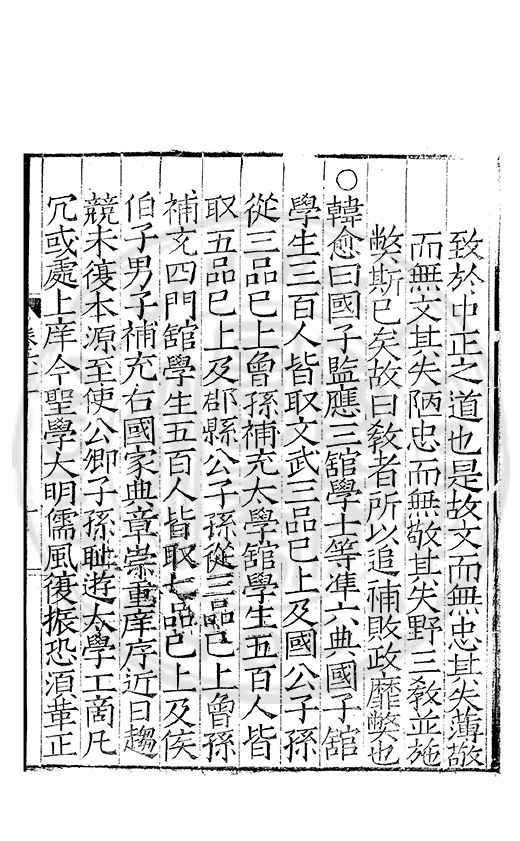 致於中正之道也是故文而無忠其失薄敬
而無文其失陋忠而無敬其失野三敎並施
弊斯已矣故曰敎者所以追補敗政靡弊也
○韓愈曰國子監應三舘學士等凖六典國子舘
學生三百人皆取文武三品已上及國公子孫
從三品已上曾孫補充太學舘學生五百人皆
取五品已上及郡縣公子孫從三品已上曾孫
補充四門舘學生五百人皆取七品已上及侯
伯子男子補充右國家典章崇重庠序近日趨
競未復本源至使公卿子孫恥遊太學工啇凡
冗或處上庠今聖學大明儒風復振恐湏革正